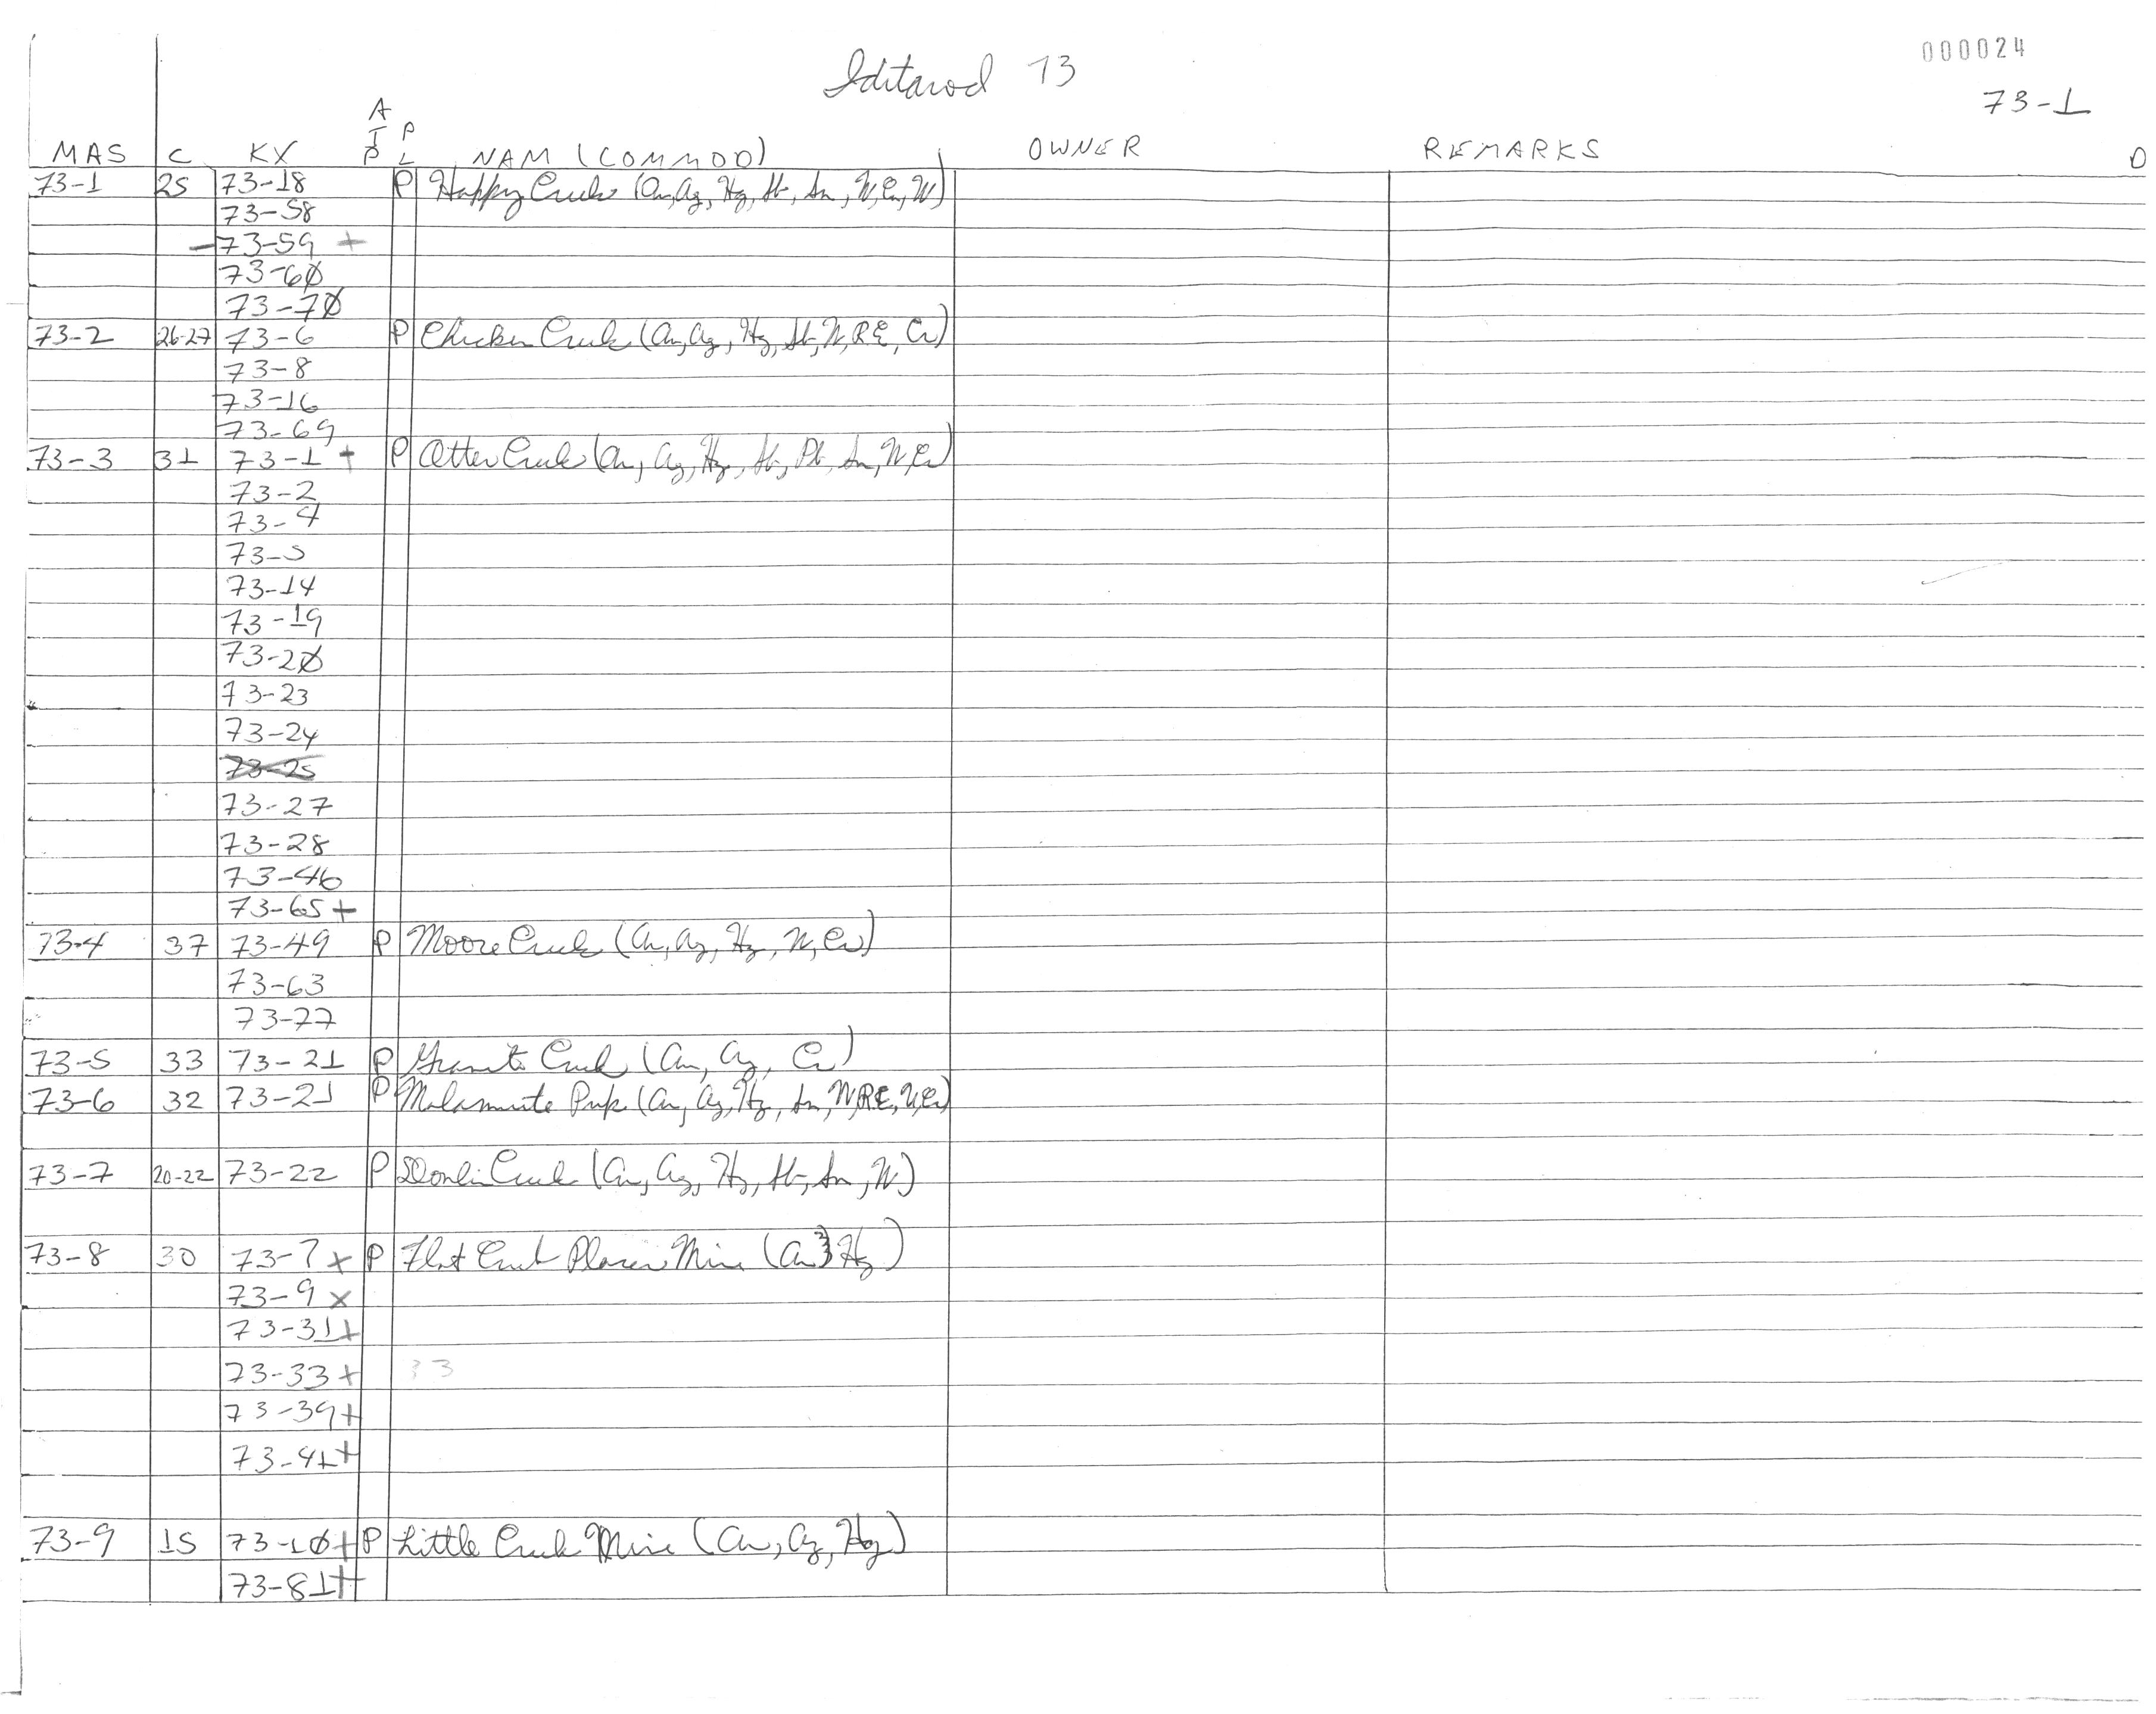 000024
Iditarod 73
73-1
A
I P
MAS C KX P L NAM (COMMOD) OWNER REMARKS
73-1 25 73-18 P Happy Creek (Au, Ag, Hg, Sb, Sn, W, Cu, W)
73-58
-73-59 +
73-6Ø
73-7Ø
73-2 26-27 73-6 P Chicken Creek (Au, Ag, Hg, Sb, W, RE, Cr)
73-8
73-16
73-69
73-3 31 73-1 + P Otter Creek (Au, Ag, Hg, Sb, Pb, Sn, W, Cr)
73-2
73-4
73-5
73-14
73-19
73-2Ø
73-23
73-24
73-25
73-27
73-28
73-46
73-65+
73-4 37 73-49 P Moore Creek (Au, Ag, Hg, W, Cr)
73-63
73-77
73-5 33 73-21 P Granite Creek (Au, Ag, Cr)
73-6 32 73-21 P Malamute Pup (Au, Ag, Hg, Sn, W, RE, U, Cr)
73-7 20-22 73-22 P Donlin Creek (Au, Ag, Hg, Sb, Sn, W)
73-8 30 73-7 x P Flat Creek Placer Mine (Au, Hg)
73-9 x
73-31+
73-33+ 33
73-39+
73-41+
73-9 15 73-1Ø+ P Little Creek Mine (Au, Ag, Hg)
73-81+